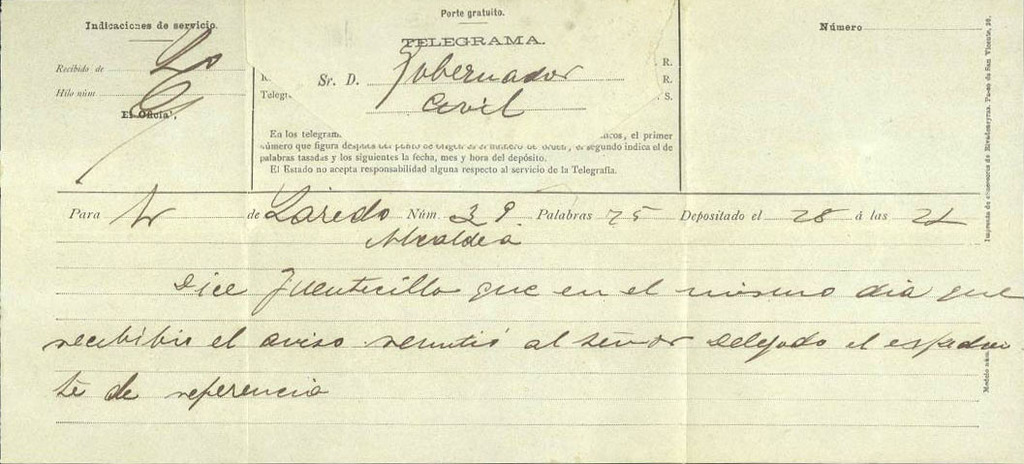 Indicaciones de servicio.
Recibido de
Hilo núm
El Oficial,
Porte gratuito.
TELEGRAMA.
Sr. D. Gobernador
Civil
R.
R.
S.
R.
Telegr
En los telegram
cos, el primer
número que figura después del punto de origen es el número de orden, el segundo indica el de
palabras tasadas y los siguientes la fecha, mes y hora del depósito.
El Estado no acepta responsabilidad alguna respecto al servicio de la Telegrafía.
Número
Para de Laredo Núm. 39 Palabras 25 Depositado el 28 á las 21
Alcaldia
Dice Fuentecilla que en el mismo dia que
recibibio el aviso remitió al señor Delegado el espedien
te de referencia
Imprenta de sucesores de Rivadeneyra. Paseo de San Vicente, 20.
Modelo núm.